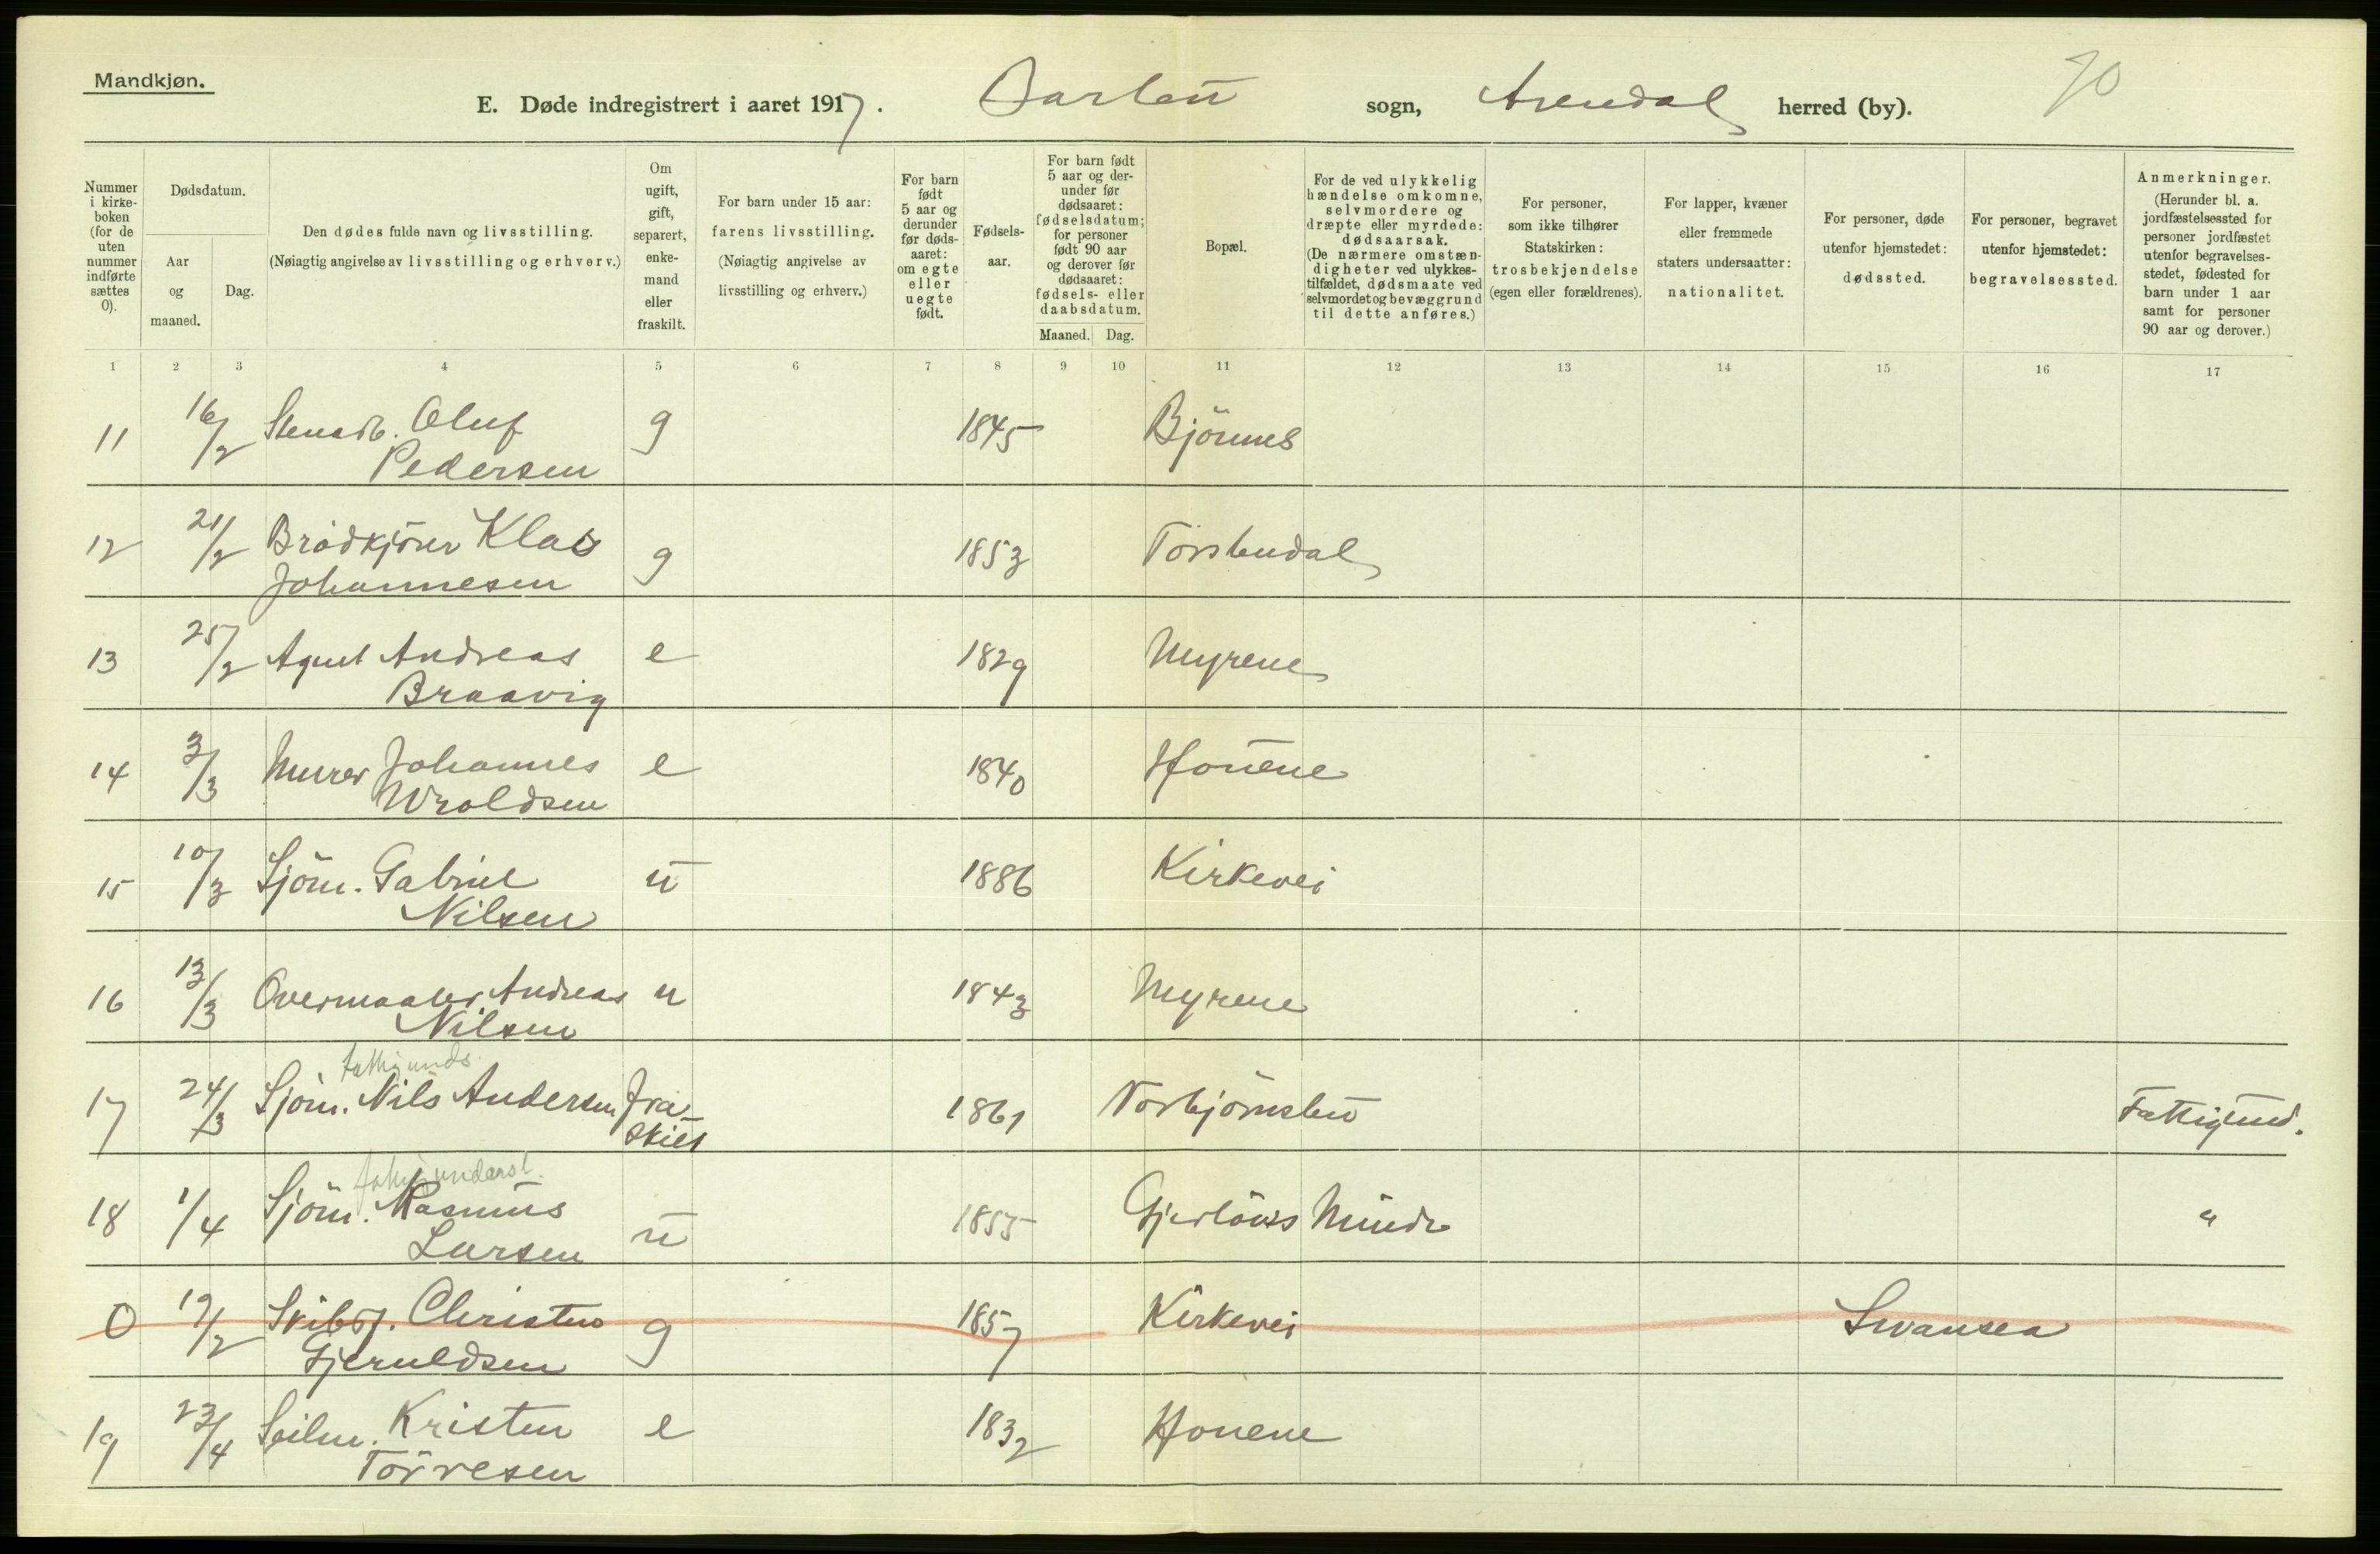 Mandkjøn.
E. Døde indregistrert i aaret 1917. Barbu sogn, Arendal herred (by). 70
Nummer i kirke-boken (for de uten nummer indførte sættes 0).
Dødsdatum.
Aar og maaned.
Dag.
Den dødes fulde navn og livsstilling.
(Nøiagtig angivelse av livsstilling og erhverv.)
Om ugift, gift, separert, enke-mand eller fraskilt.
For barn under 15 aar: farens livsstilling.
(Nøiagtig angivelse av livsstilling og erhverv.)
For barn født 5 aar og derunder før døds-aaret: om egte eller uegte født.
Fødsels-aar.
For barn født 5 aar og der-under før dødsaaret: fødselsdatum; for personer født 90 aar og derover før dødsaaret: fødsels- eller daabsdatum.
Maaned. Dag.
Bopæl.
For de ved ulykkelig hændelse omkomne, selvmordere og dræpte eller myrdede: dødsaarsak.
(De nærmere omstæn-digheter ved ulykkes-tilfældet, dødsmaate ved selvmordet og bevæggrund til dette anføres.)
For personer, som ikke tilhører Statskirken: trosbekjendelse (egen eller forældrenes).
For lapper, kvæner eller fremmede staters undersaatter: nationalitet.
For personer, døde utenfor hjemstedet: dødssted.
For personer, begravet utenfor hjemstedet: begravelsessted.
Anmerkninger.
(Herunder bl. a. jordfæstelsessted for personer jordfæstet utenfor begravelses-stedet, fødested for barn under 1 aar samt for personer 90 aar og derover.)
1 2 3 4 5 6 7 8 9 10 11 12 13 14 15 16 17
11 16/2 Oluf g 1845 Björnnes
Pedersen
12 21/2 Brödkjörer Klas g 1853 Torstendal
Johannesen
13 25/2 Agent Andreas e 1829 Myrene
Braavig
14 3/3 Murer Johannes e 1840 Houene
Wroldsen
15 10/3 Sjöm. Gabriel u 1886 Kirkevei
Nilsen
16 13/3 Overmaaler Andreas u 1843 Myrene
Nilsen
fattigunds.
17 24/3 Sjöm. Nils Andersen fra- 1861 Torbjörnsbu Fattigund.
skilt
fattigunderst.
18 1/4 Sjöm. Rasmus u 1855 Gjerlöws Minde "
Larsen
0 19/2 Skibsf. Christen g 1857 Kirkevei Swansea
Gjeruldsen
19 23/4 Seilm. Kristen e 1832 Houene
Torresen